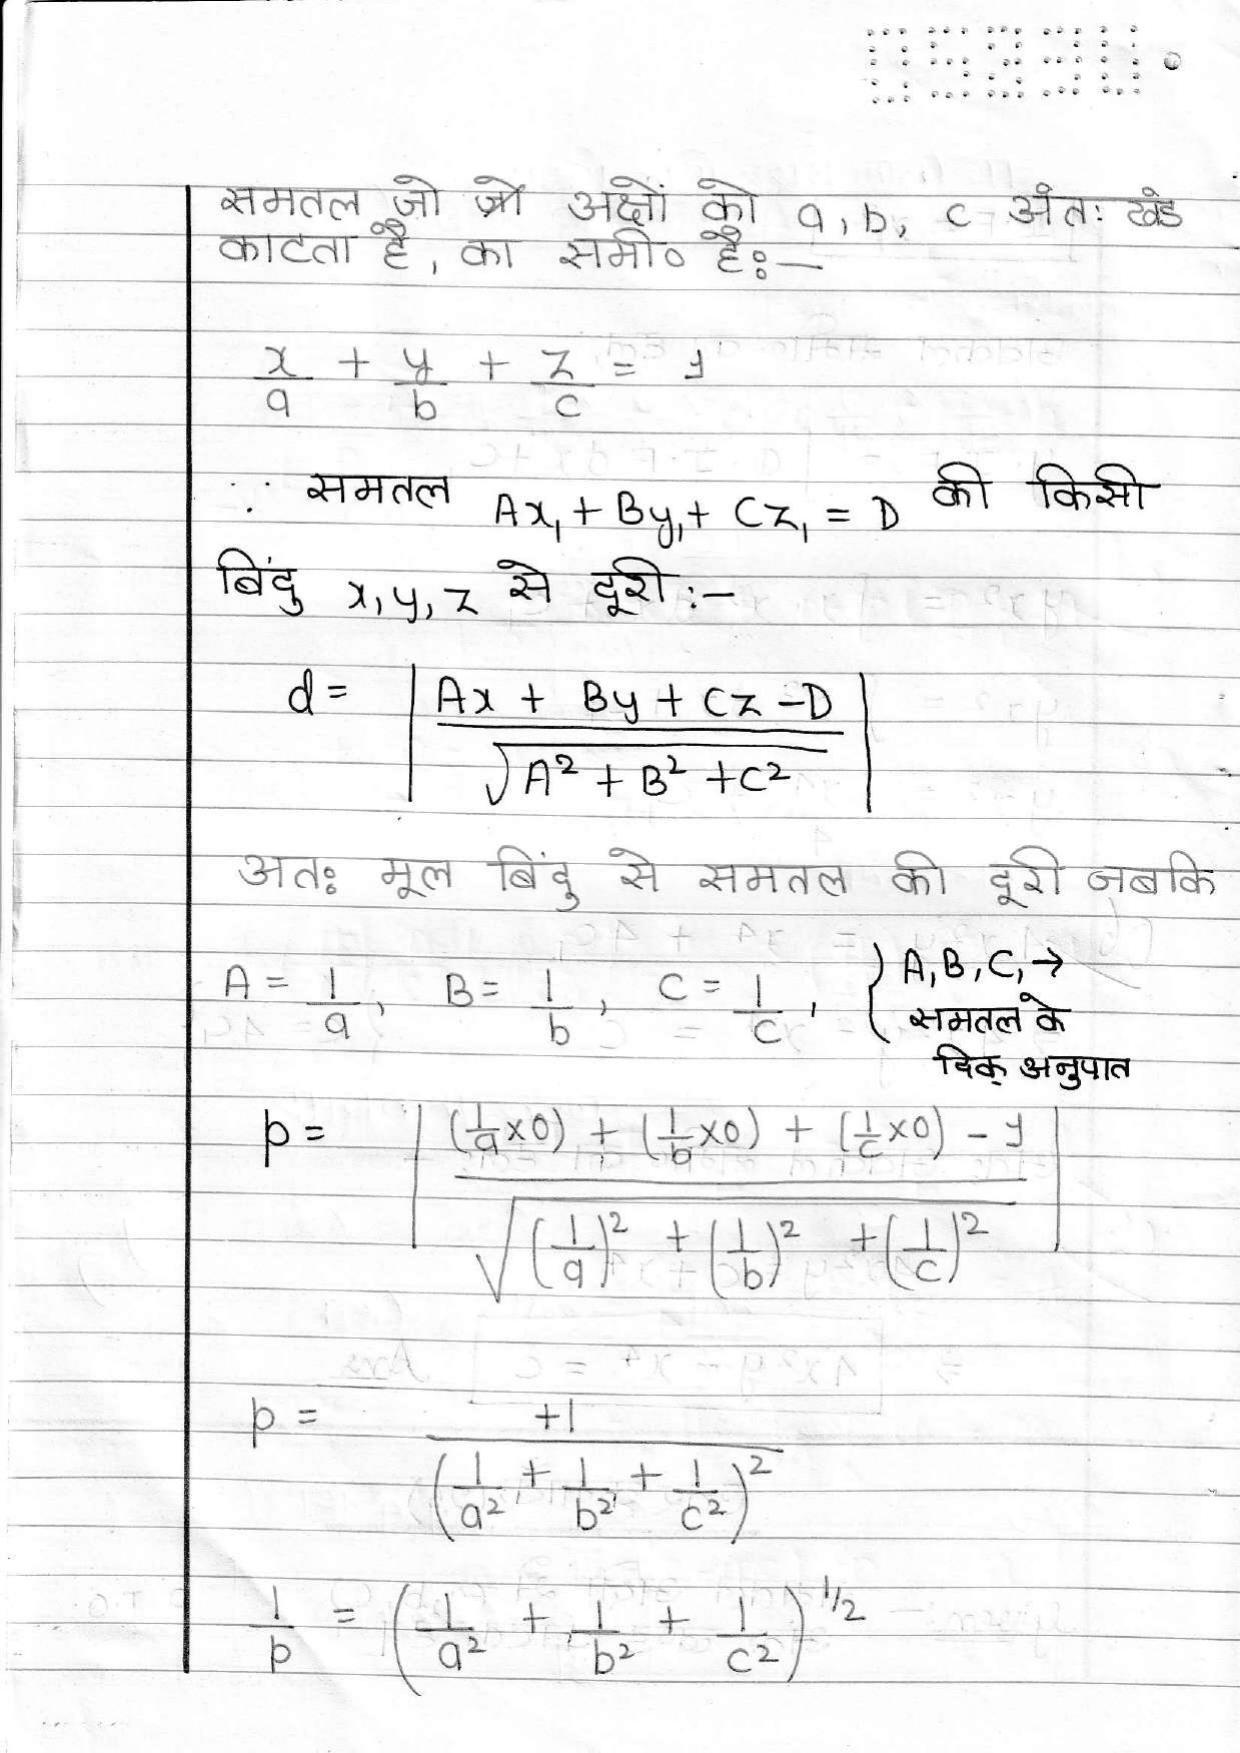 समतल जो जो अक्षों को a, b, c अंतः खंड
काटता है, का समी० है:—
x/a + y/b + z/c = 1
∵ समतल Ax₁ + By₁ + Cz₁ = D की किसी
बिंदु x, y, z से दूरी:-
d = | (Ax + By + Cz - D) / √(A² + B² + C²) |
अतः मूल बिंदु से समतल की दूरी जबकि
A = 1/a, B = 1/b, C = 1/c, { A, B, C, →
समतल के
दिक् अनुपात
p = | ((1/a × 0) + (1/b × 0) + (1/c × 0) - 1) / √((1/a)² + (1/b)² + (1/c)²) |
p = +1 / (1/a² + 1/b² + 1/c²)²
1/p = (1/a² + 1/b² + 1/c²)^1/2